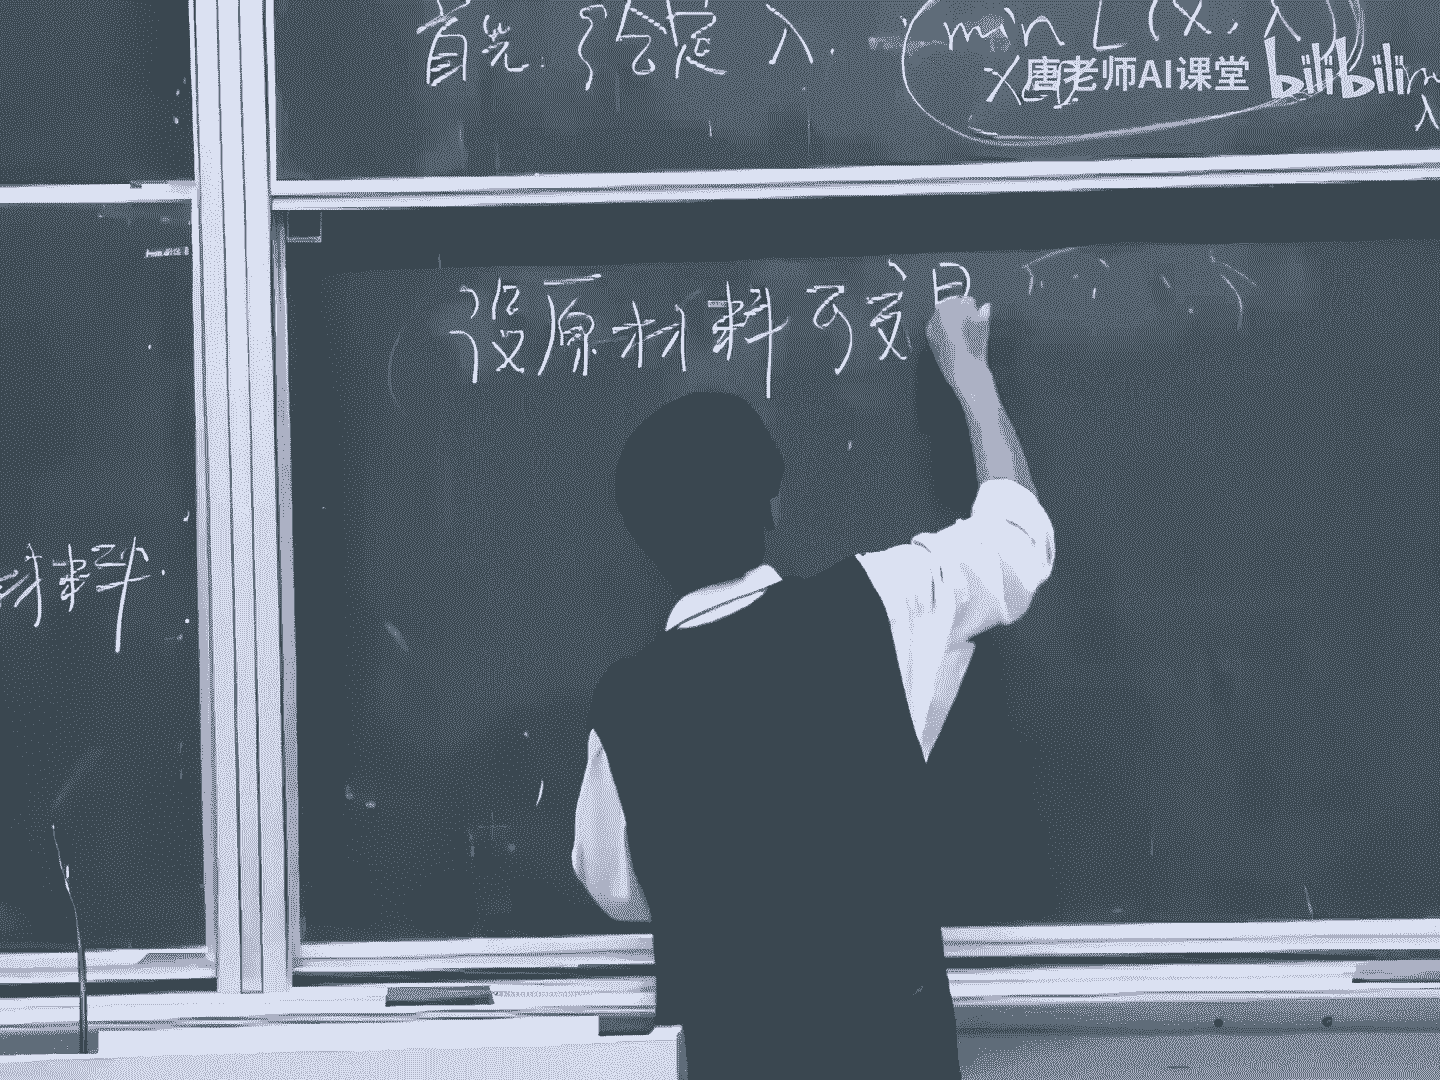 首先.给定 λ. min L(x, λ)
x∈D
唐老师AI课堂 bilibili
λ
设原材料可变
材料.